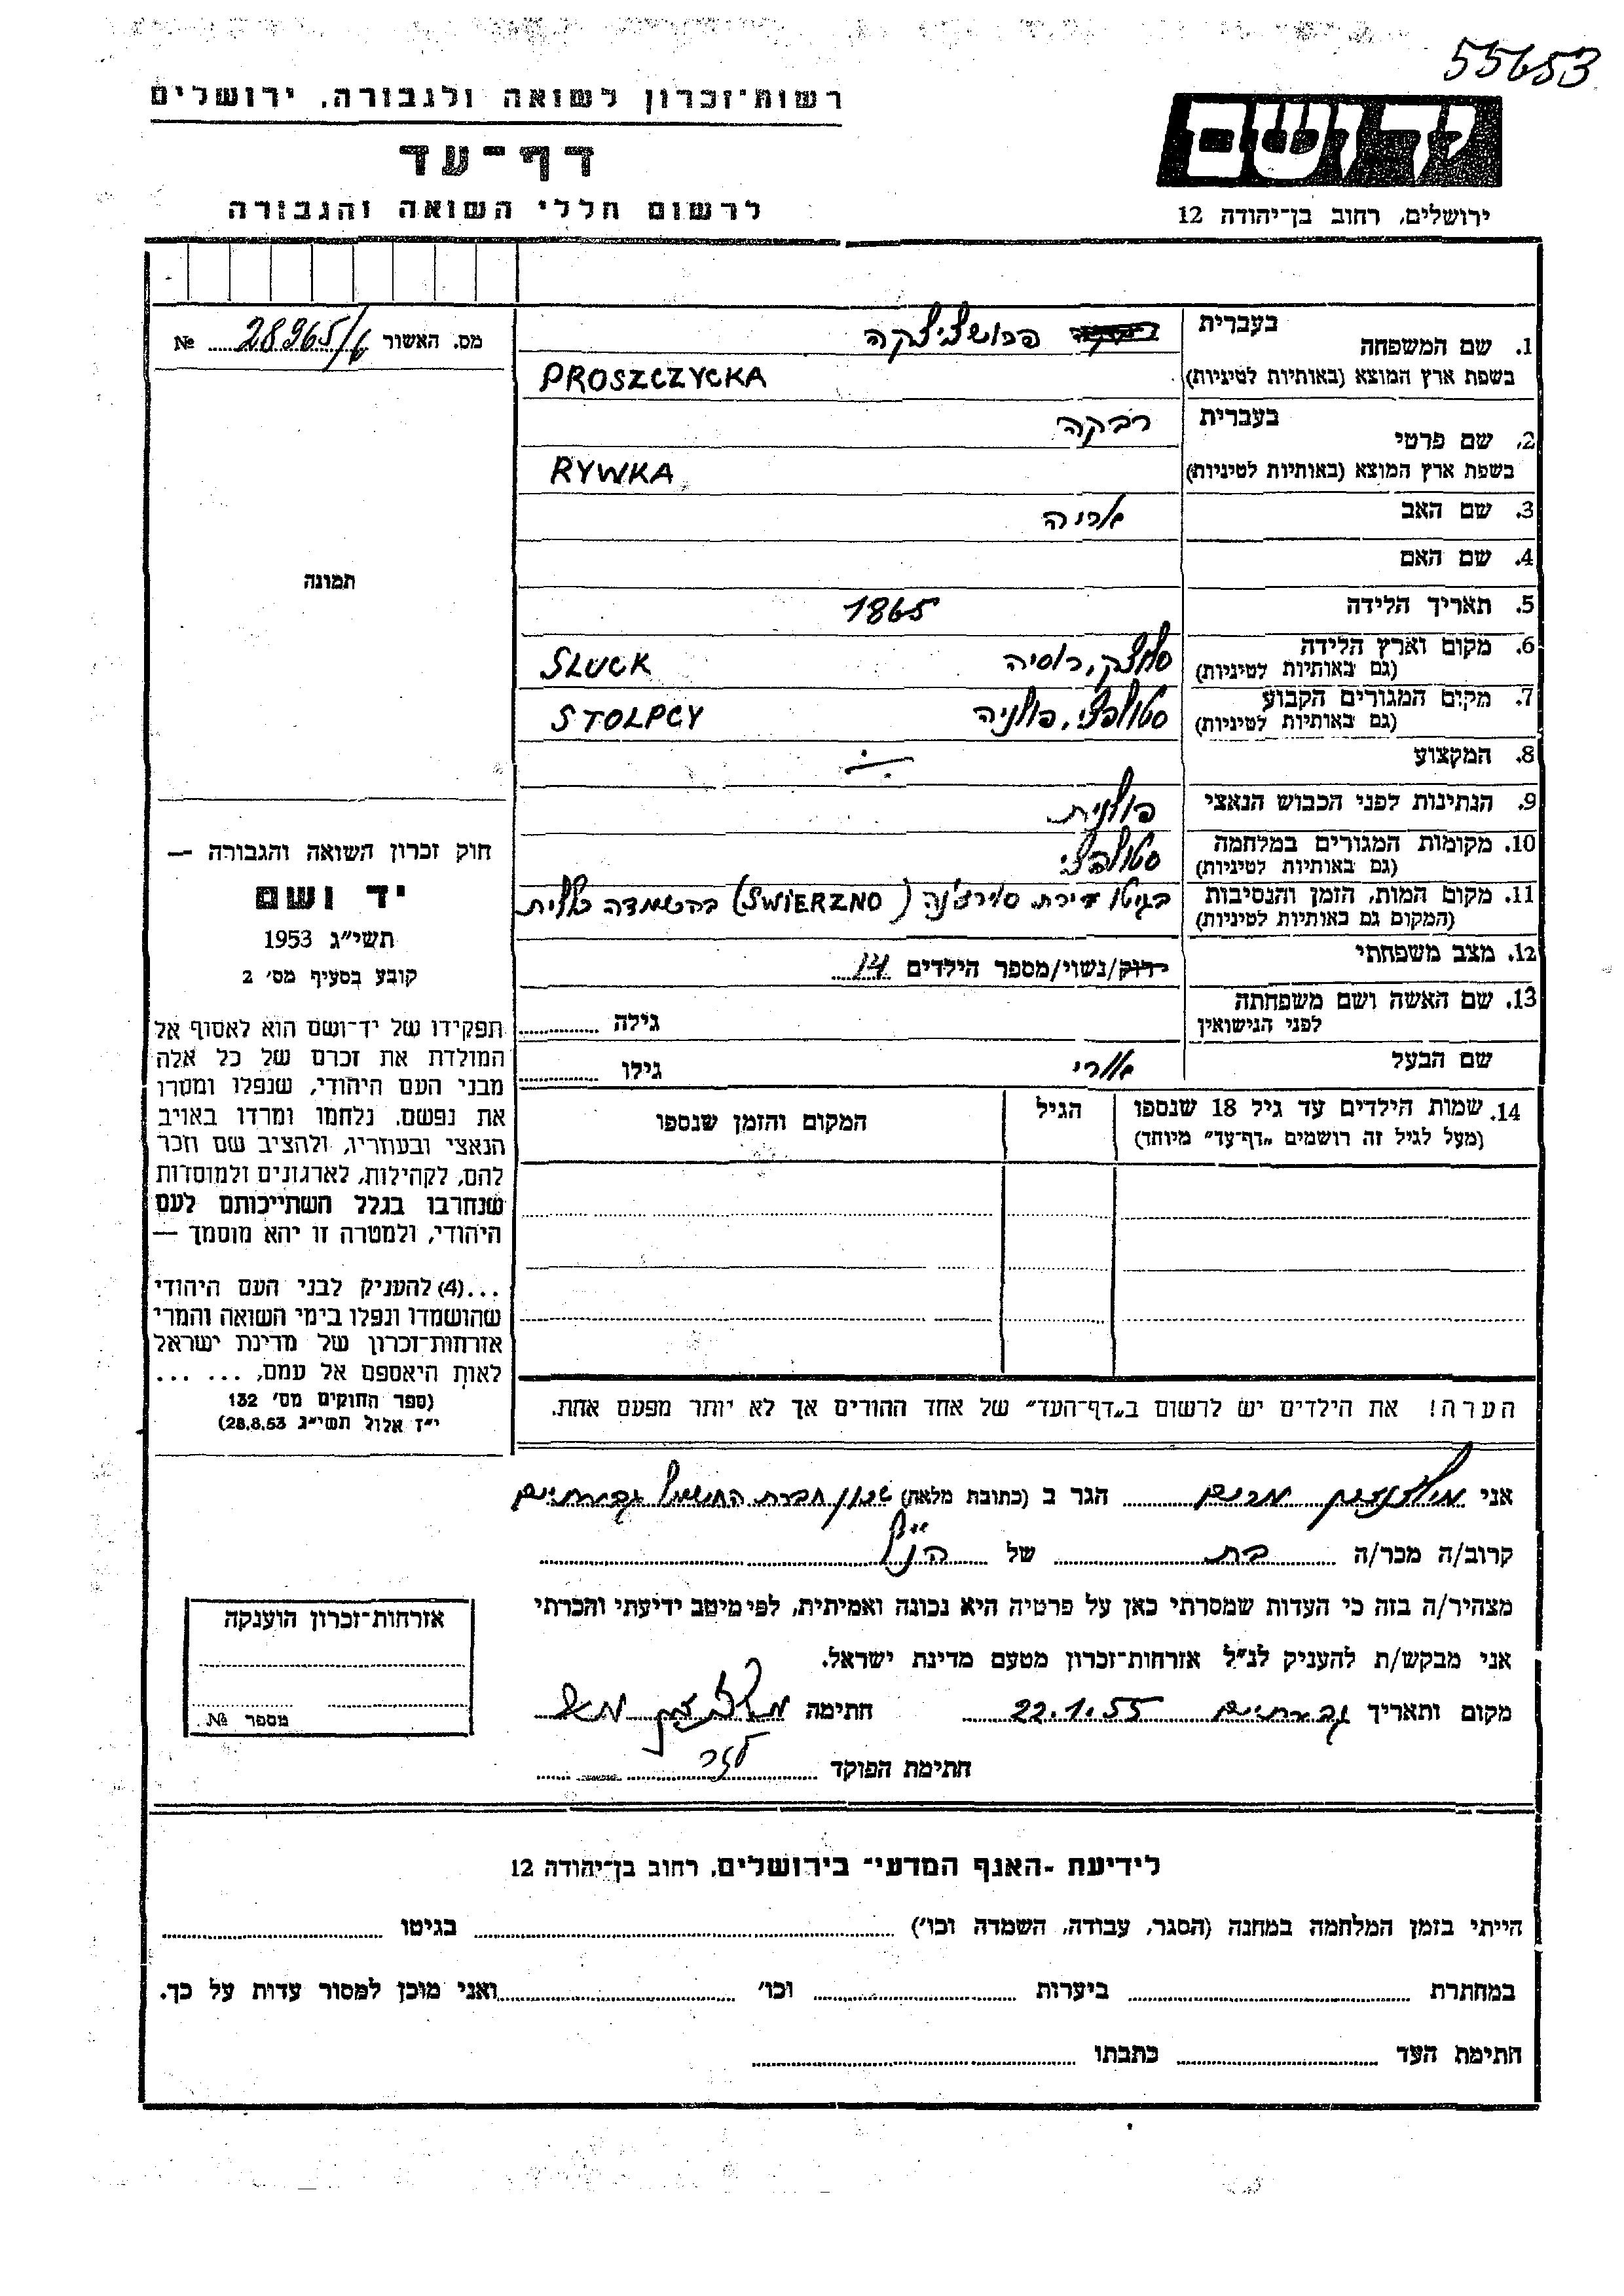 55653
רשות־זכרון לשואה ולגבורה, ירושלים
דף־עד
לרשום חללי השואה והגבורה
יד ושם
ירושלים, רחוב בן־יהודה 12
מס. האשור 28965/ №
1. שם המשפחה בעברית פרושציצקה
בשפת ארץ המוצא (באותיות לטיניות) PROSZCZYCKA
2. שם פרטי בעברית רבקה
בשפת ארץ המוצא (באותיות לטיניות) RYWKA
3. שם האב אריה
4. שם האם
5. תאריך הלידה 1865
6. מקום וארץ הלידה (גם באותיות לטיניות) סלוצק, רוסיה SLUCK
7. מקום המגורים הקבוע (גם באותיות לטיניות) סטולפצי, פולניה STOLPCY
8. המקצוע
9. הנתינות לפני הכבוש הנאצי פולנית
10. מקומות המגורים במלחמה (גם באותיות לטיניות) סטולפצי
11. מקום המות, הזמן והנסיבות (המקום גם באותיות לטיניות) בגיטו (SWIERZNO) בהשמדה כללית
12. מצב משפחתי רווק/נשוי/מספר הילדים 14
13. שם האשה ושם משפחתה לפני הנישואין גילה
שם הבעל אורי גילו
14. שמות הילדים עד גיל 18 שנספו (מעל לגיל זה רושמים "דף־עד" מיוחד) הגיל המקום והזמן שנספו
הערה! את הילדים יש לרשום ב"דף־העד" של אחד ההורים אך לא יותר מפעם אחת.
תמונה
חוק זכרון השואה והגבורה —
יד ושם
תשי"ג 1953
קובע בסעיף מס' 2
תפקידו של יד־ושם הוא לאסוף אל
המולדת את זכרם של כל אלה
מבני העם היהודי, שנפלו ומסרו
את נפשם, נלחמו ומרדו באויב
הנאצי ובעוזריו, ולהציב שם וזכר
להם, לקהילות, לארגונים ולמוסדות
שנחרבו בגלל השתייכותם לעם
היהודי, ולמטרה זו יהא מוסמך —
...(4) להעניק לבני העם היהודי
שהושמדו ונפלו בימי השואה והמרי
אזרחות־זכרון של מדינת ישראל
לאות היאספם אל עמם, ... ...
(ספר החוקים מס' 132
י"ז אלול תשי"ג 28.8.53)
אני מרים הגר ב (כתובת מלאה) שכון חברת החשמל גבעתיים
קרוב/ה מכר/ה בת של הנ"ל
מצהיר/ה בזה כי העדות שמסרתי כאן על פרטיה היא נכונה ואמיתית, לפי מיטב ידיעתי והכרתי
אני מבקש/ת להעניק לנ"ל אזרחות־זכרון מטעם מדינת ישראל.
מקום ותאריך גבעתיים 22.1.55 חתימה
חתימת הפוקד
אזרחות־זכרון הוענקה
מספר №
לידיעת ־האגף המדעי־ בירושלים, רחוב בן־יהודה 12
הייתי בזמן המלחמה במחנה (הסגר, עבודה, השמדה וכו') בגיטו
במחתרת ביערות וכו' ואני מוכן למסור עדות על כך.
חתימת העד כתבתו